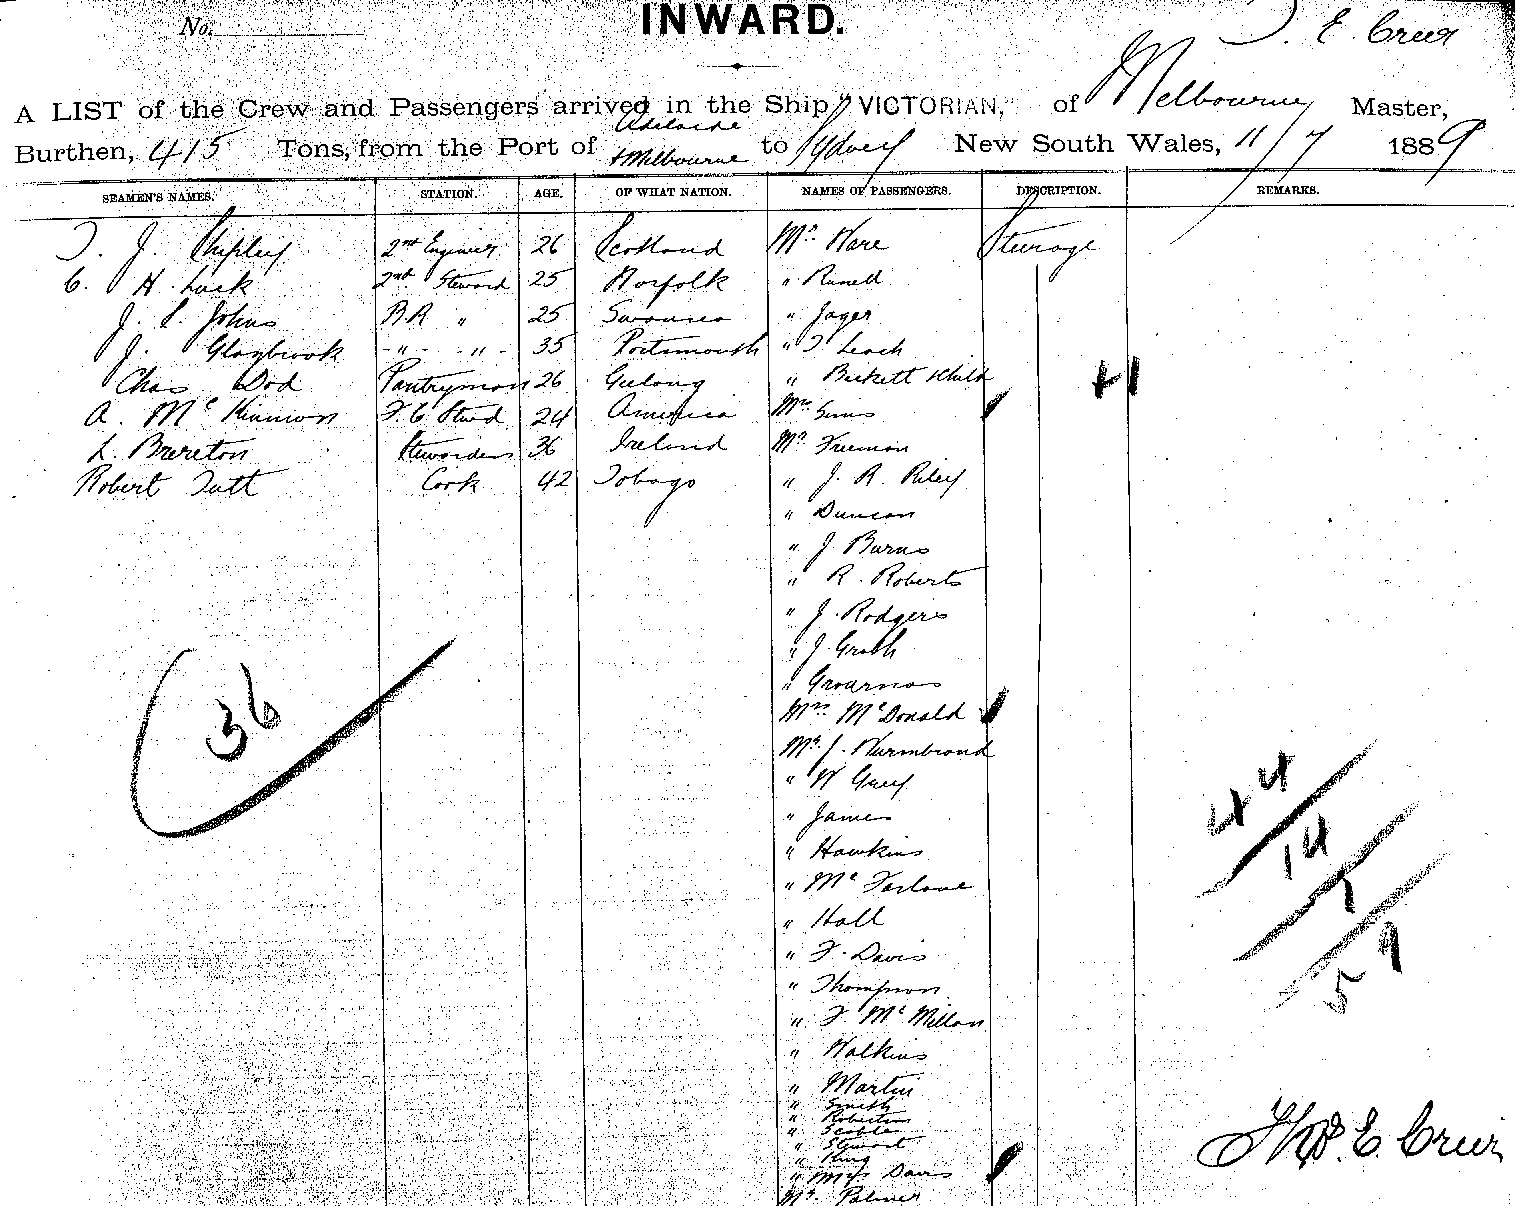 No.
INWARD.
T. E. Creer
A LIST of the Crew and Passengers arrived in the Ship "VICTORIAN," of Melbourne Master,
Burthen, 415 Tons, from the Port of Adelaide + Melbourne to Sydney New South Wales, 11/7 1889
SEAMEN'S NAMES. STATION. AGE. OF WHAT NATION. NAMES OF PASSENGERS. DESCRIPTION. REMARKS.
T. J. Shipley 2nd Engineer 26 Scotland Mr. Ware Steerage
C. H. Luck 2nd Steward 25 Norfolk " Russell
J. S. Johns B.R " 25 Swansea " Jager
J. Glazbrook " " 35 Portsmouth " T Leach
Chas Dod Pantryman 26 Geelong " Beckett & Child +1
A. McKinnon F.C Stwd 24 America Mrs. Sims
L. Brereton Stewardess 36 Ireland Mr. Freeman
Robert Tutt Cook 42 Tobago " J. R. Riley
" Duncan
" J Burns
" R. Roberts
" J. Rodgers
" J.
"
Mrs. McDonald
Mr. J. Wurmbrand
36
" W Grey
" James
44
" Hawkins
14
" McFarlane
1
" Hall
" F. Davis
59
" Thompson
" F. McMillan
" Walkins
" Martin
" Smith
" Robertson
" Scobler
" Stewart
" King
" Miss Davis
Thos. E. Creer
Mr. Palmer